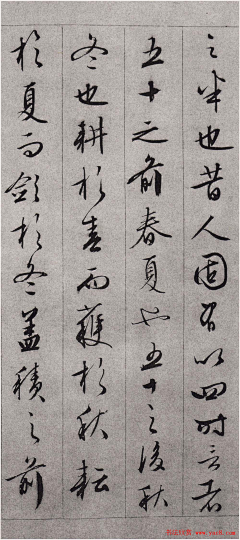 之半也昔人固有以四时言者
五十之前春夏也五十之後秋
冬也耕於春而穫於秋耘
於夏而斂於冬蓋積之前
www.yac8.com